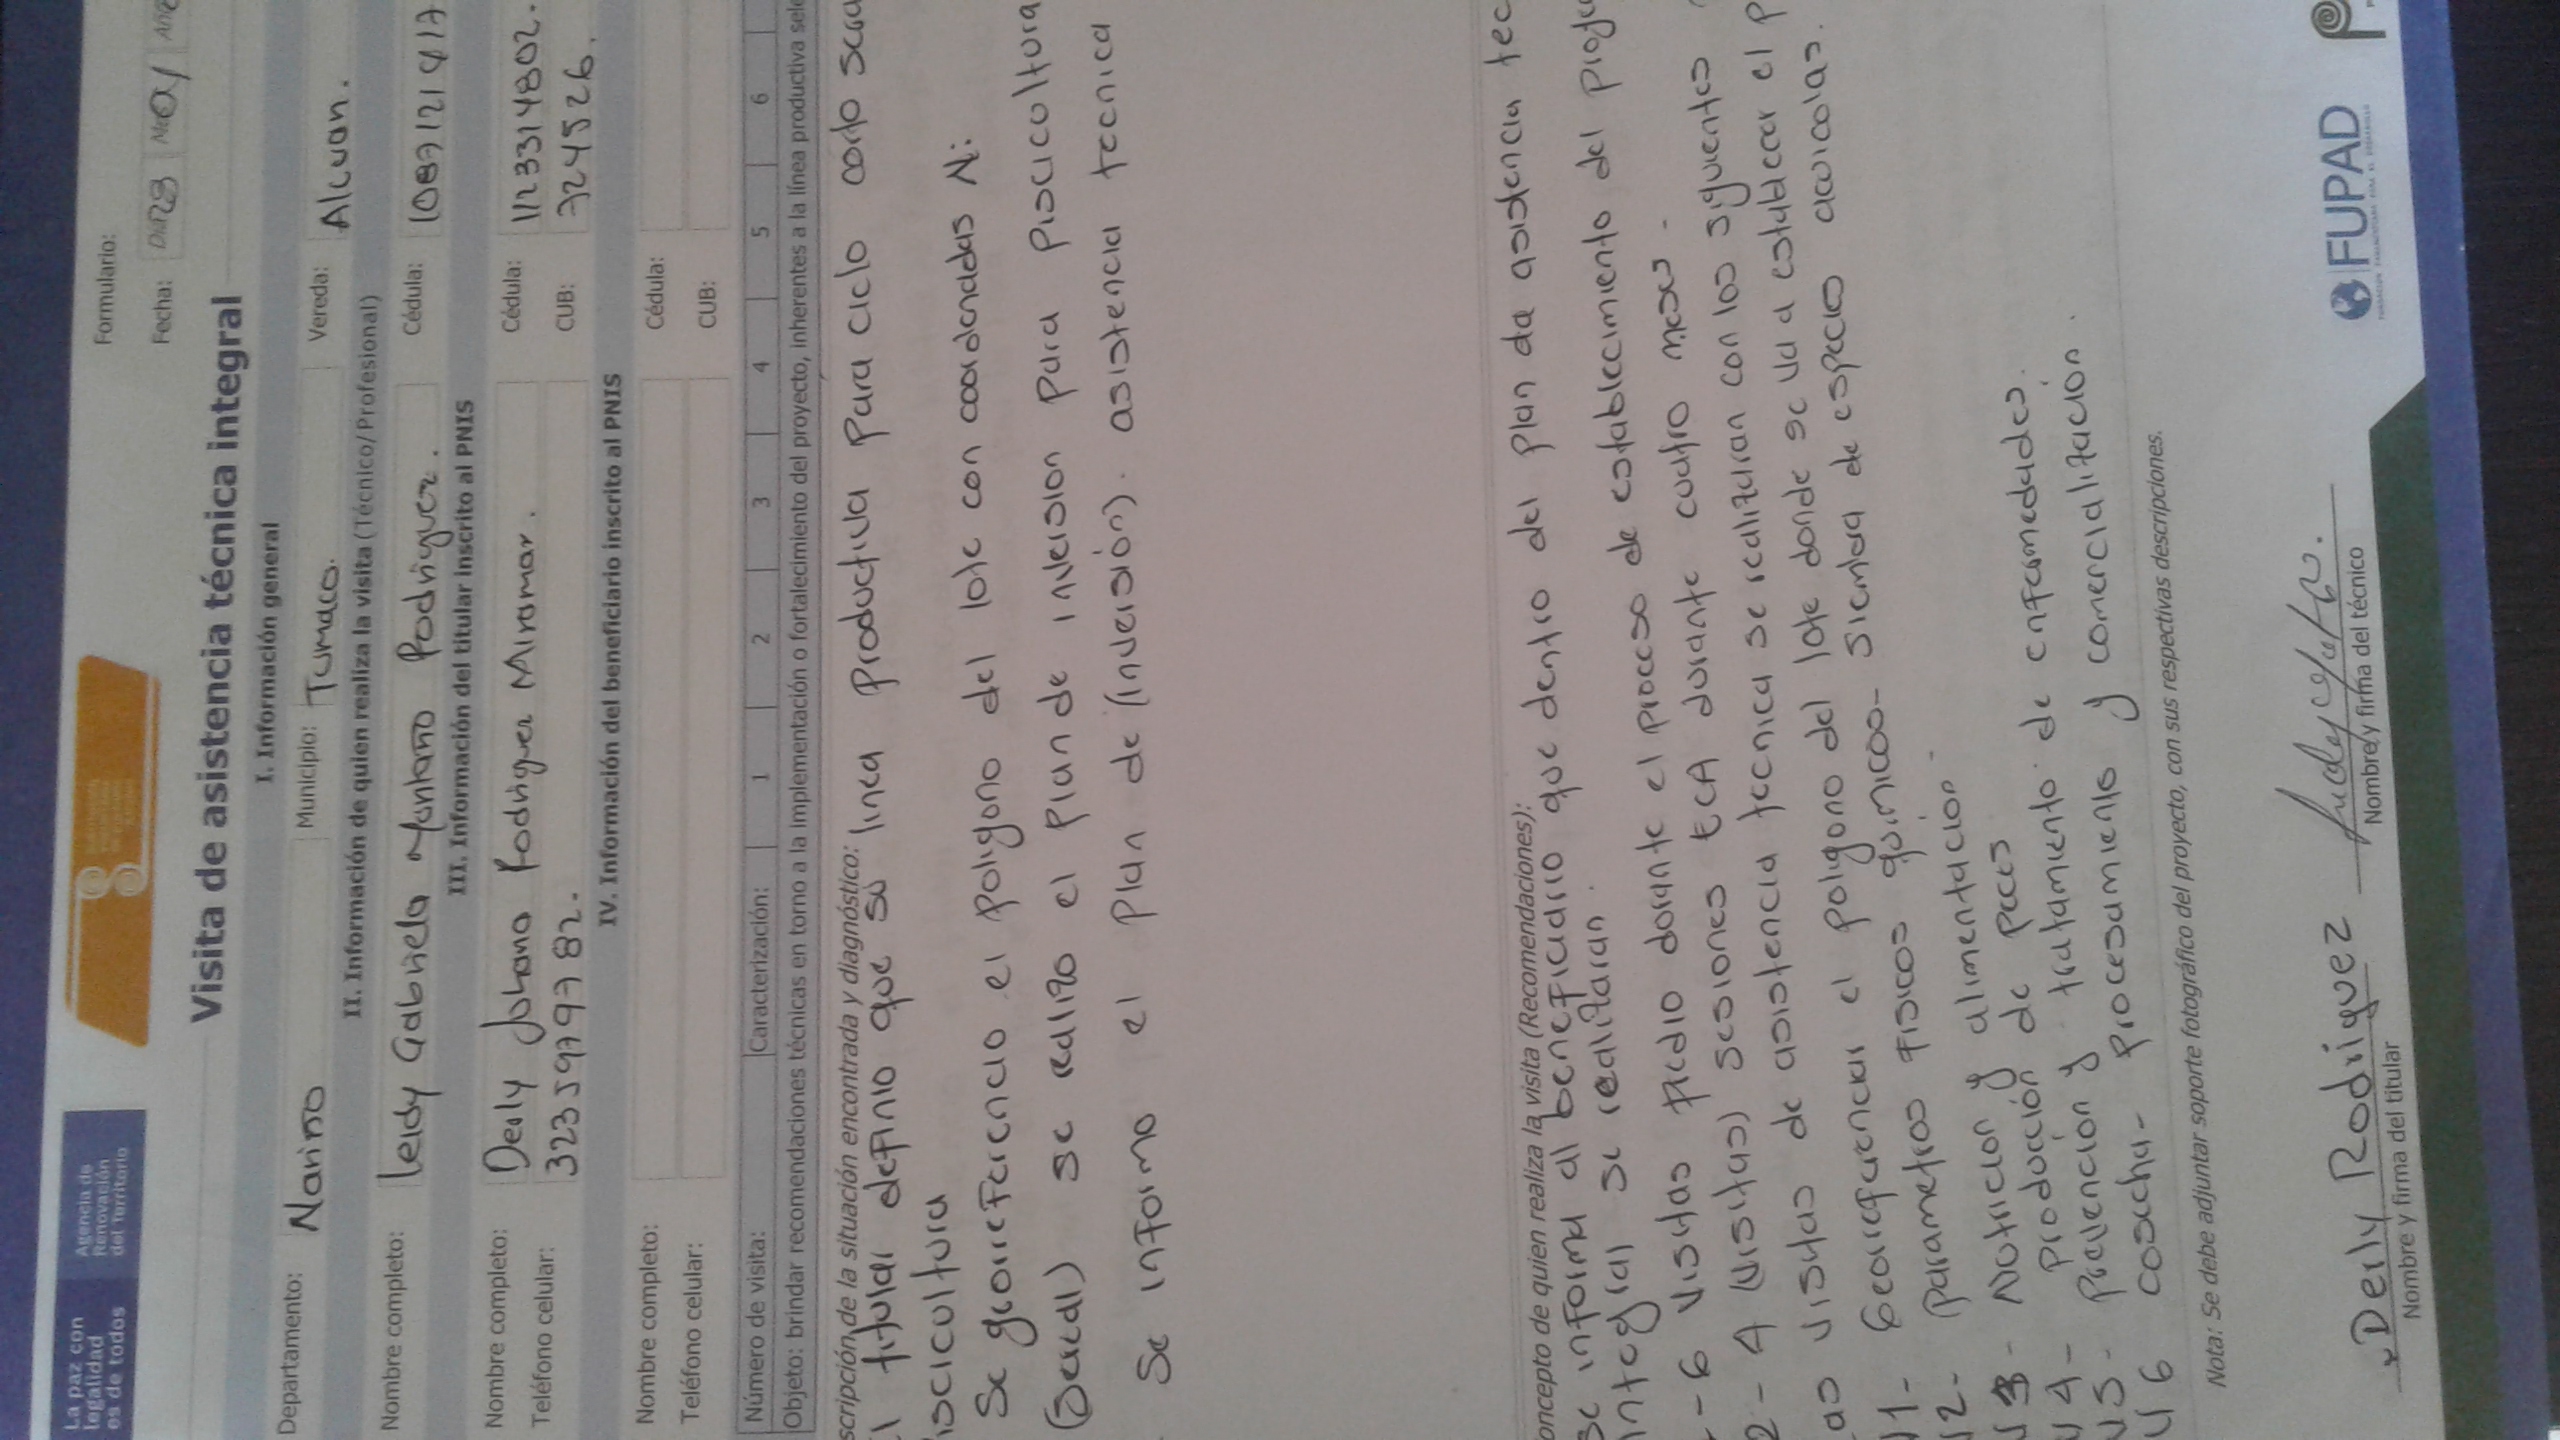 La paz con
legalidad
es de todos
Agencia de
Renovación
del Territorio
Formulario:
Fecha: Día 28 Mes 01 Año
Visita de asistencia técnica integral
I. Información general
Departamento: Nariño Municipio: Tumaco. Vereda: Alcuan.
II. Información de quien realiza la visita (Técnico/Profesional)
Nombre completo: Leidy Gabriela Montaño Rodriguez. Cédula: 1087121417
III. Información del titular inscrito al PNIS
Nombre completo: Derly Johana Rodriguez Miramar. Cédula: 1123314802.
Teléfono celular: 3235979782. CUB: 724526.
IV. Información del beneficiario inscrito al PNIS
Nombre completo: Cédula:
Teléfono celular: CUB:
Número de visita: Caracterización: 1 2 3 4 5 6
Objeto: brindar recomendaciones técnicas en torno a la implementación o fortalecimiento del proyecto, inherentes a la línea productiva sele
scripción de la situación encontrada y diagnóstico:
l titular definio que su linea productiva para ciclo corto sera
iscicultura
Se georreferencio el poligono del lote con coordenadas N:
se realizo el plan de inversion para piscicultura
Se informo el plan de (inversión). asistencia tecnica
oncepto de quien realiza la visita (Recomendaciones):
Se informa al beneficiario que dentro del plan da asistencia tec
integral se realizaran.
- 6 visitas predio durante el proceso de establecimiento del proye
2- 4 (visitas) sesiones ECA durante cuatro meses.
as visitas de asistencia tecnica se realizaran con los siguientes
V1- Georreferenciar el poligono del lote donde se va a establecer el p
V2- parametros fisicos quimicos- siembra de especies acuicolas.
V3- Nutricion y alimentacion.
V4- producción de peces
V5- prevencion y tratamiento de enfermedades.
V6 cosecha- procesamiento y comercialización.
Nota: Se debe adjuntar soporte fotográfico del proyecto, con sus respectivas descripciones.
Derly Rodriguez
Nombre y firma del titular
Nombre y firma del técnico
FUPAD